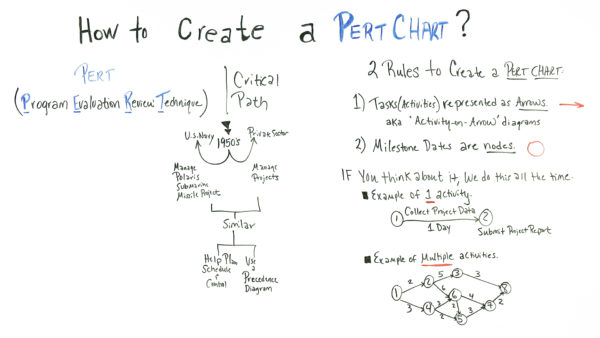 How to Create a PERT CHART?
PERT
(Program Evaluation Review Technique)
Critical
Path
U.S. Navy
1950's
Private Sector
Manage
Polaris
Submarine
Missile Project
Manage
Projects
Similar
Help Plan
Schedule
&
Control
Use
a
Precedence
Diagram
2 Rules to Create a PERT CHART.
1) Tasks (Activities) represented as Arrows.
aka "Activity-on-Arrow" diagrams
2) Milestone Dates are nodes.
IF You think about it, we do this all the time.
Example of 1 activity.
1 Collect Project Data 2
1 Day
Submit Project Report
Example of Multiple activities.
1 2 2 5 3 3 8
6 6 4 7 2
3 4 3 2 2 5 3